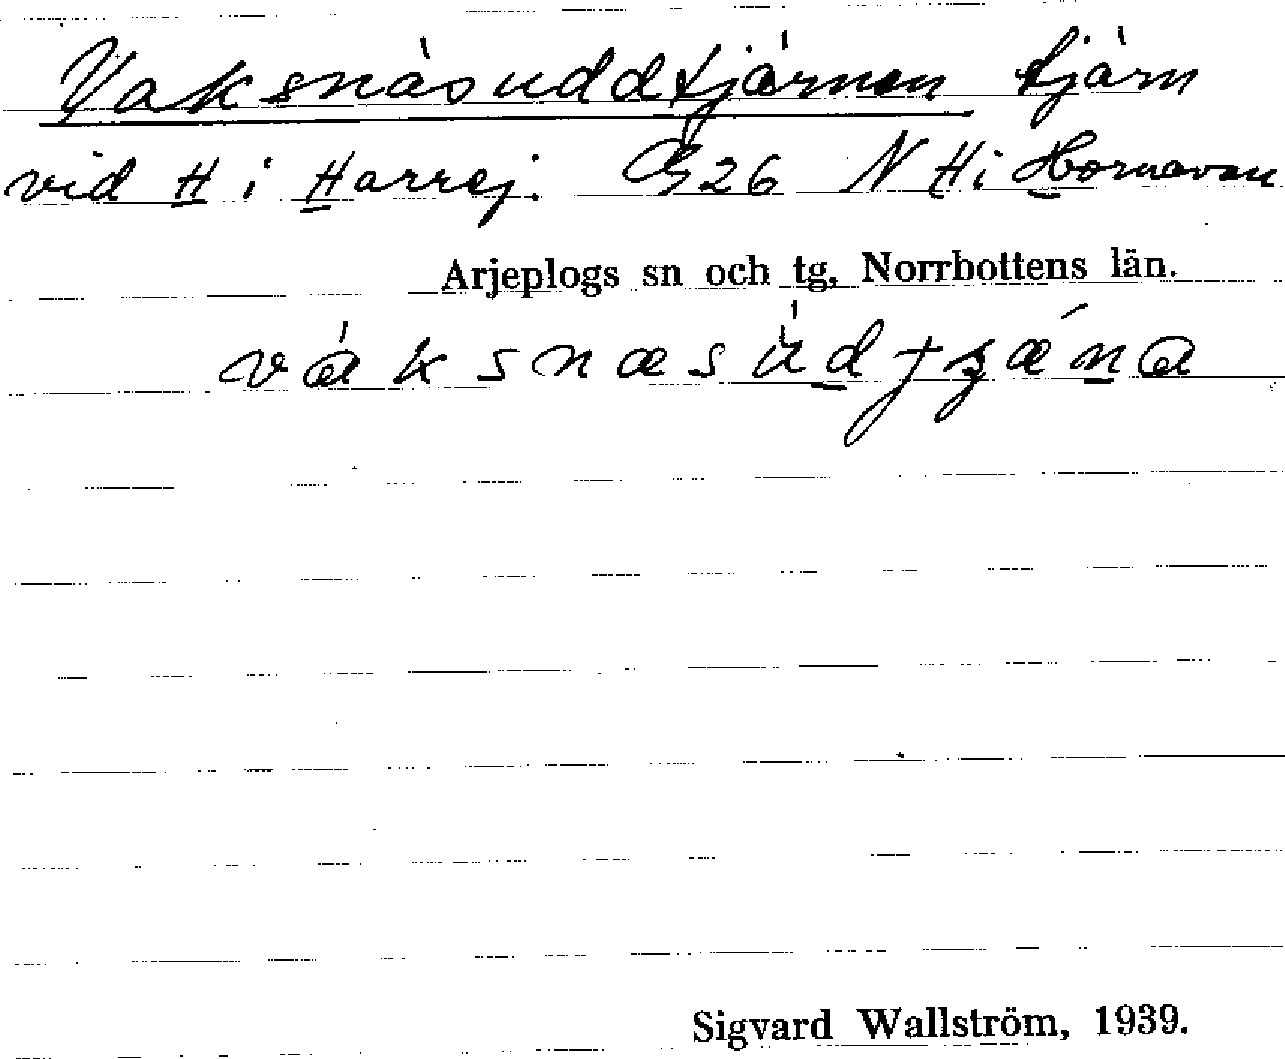 Vaksnäsuddtjärnen tjärn
vid H i Harrej. G26 N H i Hornavan
Arjeplogs sn och tg, Norrbottens län.
Sigvard Wallström, 1939.